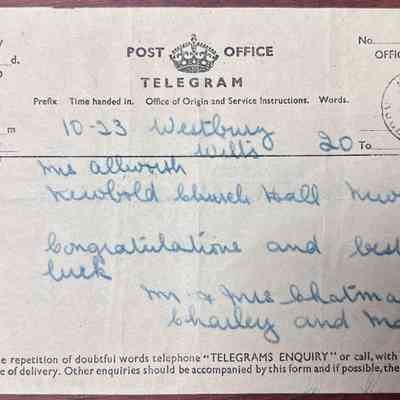 POST OFFICE
No.
OFFIC
d.
TELEGRAM
Prefix Time handed in. Office of Origin and Service Instructions. Words.
m 10-23 Westbury 20 To
Wilts
Mrs Allworth
Newbold Church Hall New
Congratulations and best
luck
Mr & Mrs Chatma
Charley and Ma
e repetition of doubtful words telephone "TELEGRAMS ENQUIRY" or call, with
e of delivery. Other enquiries should be accompanied by this form and if possible, the